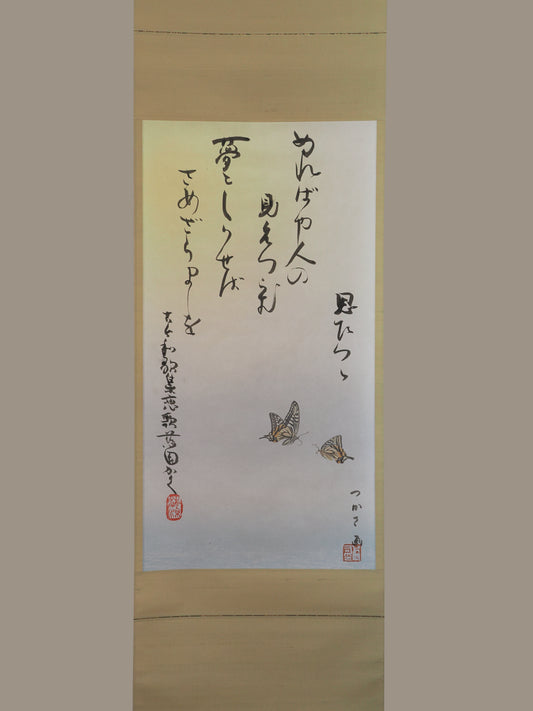 思ひつゝ
ぬればや人の
見えつらむ
夢としりせば
さめざらましを
古今和歌集恋歌
つかさ画